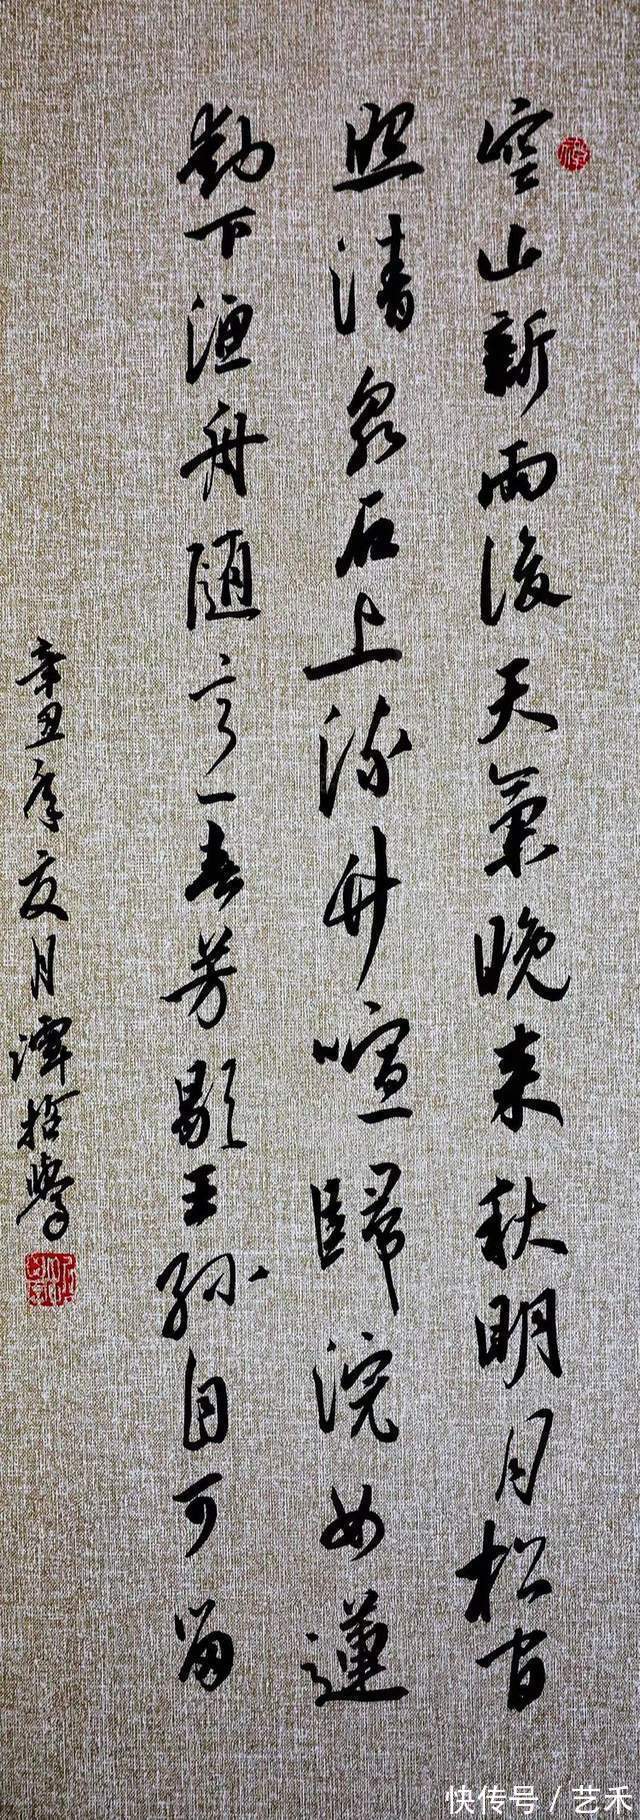 空山新雨後天氣晚來秋明月松間
照清泉石上流竹喧歸浣女蓮
動下漁舟隨意春芳歇王孫自可留
辛丑年夏月
快传号/艺禾